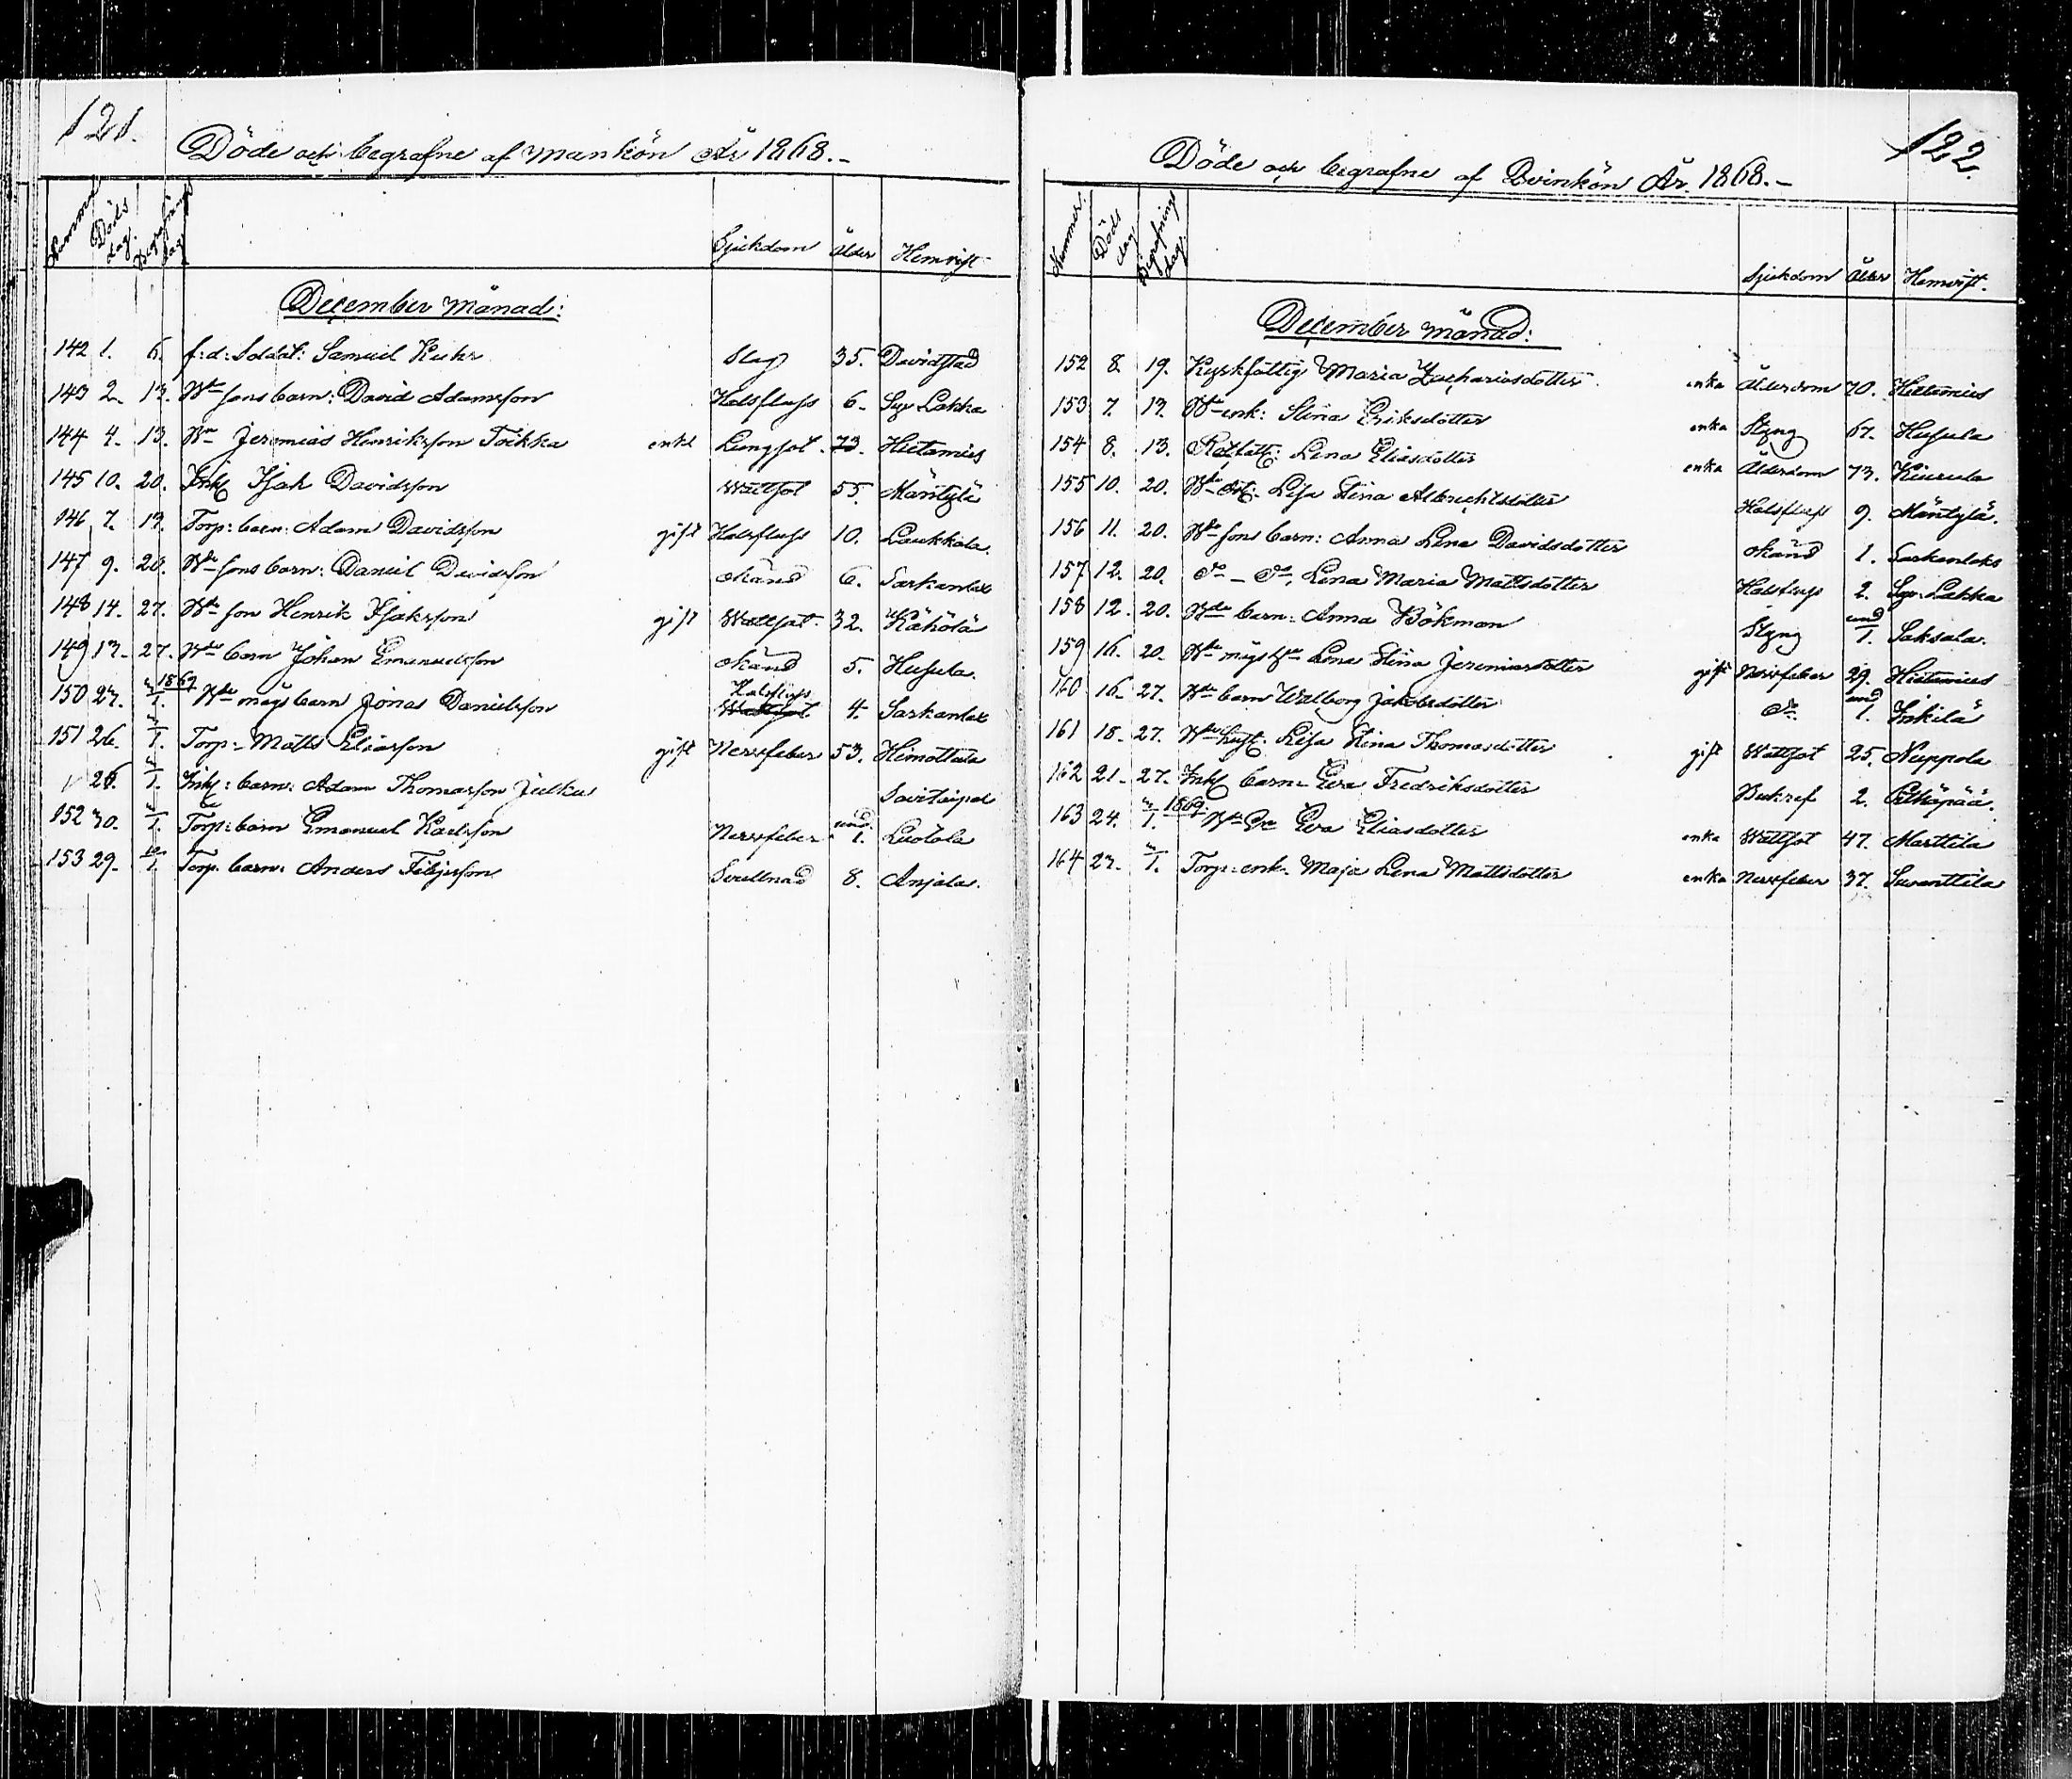 121.
Döde och begrafne af Mankön År 1868.-
Nummer Döds dag. Begrafnings dag Sjukdom Ålder Hemvist
December Månad:
142 1. 6. f:d: Soldat: Samuel Kuhr Slag 35. Davidstad
143 2. 13. Bde sons barn: David Adamsson Halsfluss 6. Lakka
144 4. 13. Bn Jeremias Henriksson Toikka enkl Lungsot 73. Hietamies
145 10. 20. Inh Isak Davidsson Wattsot 55. Mäntylä
146 7. 13. Torp: barn: Adam Davidsson gift Halsfluss 10. Laukkala.
147 9. 20. Bde sons barn: Daniel Davidsson okänd 6. Sarkanlax
148 14. 27. Bde son Henrik Isaksson gift Wattsot 32. Kähölä
149 13. 27. Bde barn Johan Emanuelsson okänd 5. Husula.
150 23. 3/1. 1869 Bde mågs barn Jonas Danielsson Halsfluss 4. Sarkanlax
151 26. 3/1. Torp: Matts Eliasson gift Nervfeber 53. Himottula
26. 3/1. Inh: barn: Adam Thomasson Julku Savitaipal
152 30. 3/1. Torp: barn Emanuel Karlsson Nervfeber und. 1. Luotola
153 29. 10/1. Torp. barn: Anders Filipsson Svullnad 8. Anjala.
122.
Döde och begrafne af Qvinkön År. 1868.-
Nummer. Döds dag Begrafnings dag. Sjukdom Ålder Hemvist.
December Månad:
152 8. 19. Kyrkfattig Maria Zachariasdotter enka Ålderdom 70. Hietamies
153 7. 13. Bde enk: Stina Eriksdotter enka Styng 67. Husula
154 8. 13. Rotfatt: Lena Eliasdotter enka Ålderdom 73. Kiurula
155 10. 20. Bde Lisa Stina Albrechtsdotter Halsfluss 9. Mäntylä.
156 11. 20. Bde sons barn: Anna Lena Davidsdotter okänd 1. Sarkanlaks
157 12. 20. do - do, Lena Maria Mattsdotter Halsfluss 2. Lakka
158 12. 20. Bde barn: Anna Bökman Styng und 1. Saksala.
159 16. 20. Bde mågs Lena Stina Jeremiasdotter gift Nervfeber 29. Hietamies
160 16. 27. Bde barn Walborg Jakobsdotter do. und 1. Inkilä
161 18. 27. Bde hust: Lisa Stina Thomasdotter gift Wattsot 25. Nuppola
162 21. 27. Inh barn: Eva Fredriksdotter Bukref 2. Pitkäpää.
163 24. 3/1. 1869. Bde Eva Eliasdotter enka Wattsot 47. Marttila
164 23. 3/1. Torp: enk. Maja Lena Mattsdotter enka Nervfeber 37. Suurittila